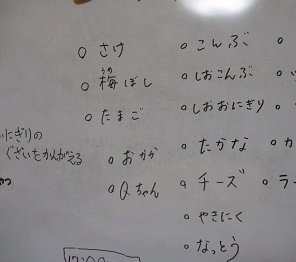 ○ さけ
○ 梅ぼし
うめ
○ たまご
○ おかか
○ Qちゃん
○ こんぶ
○ しおこんぶ
○ しおおにぎり
○ たかな
○ チーズ
○ やきにく
○ なっとう
にぎりの
ぐざいをかんがえる